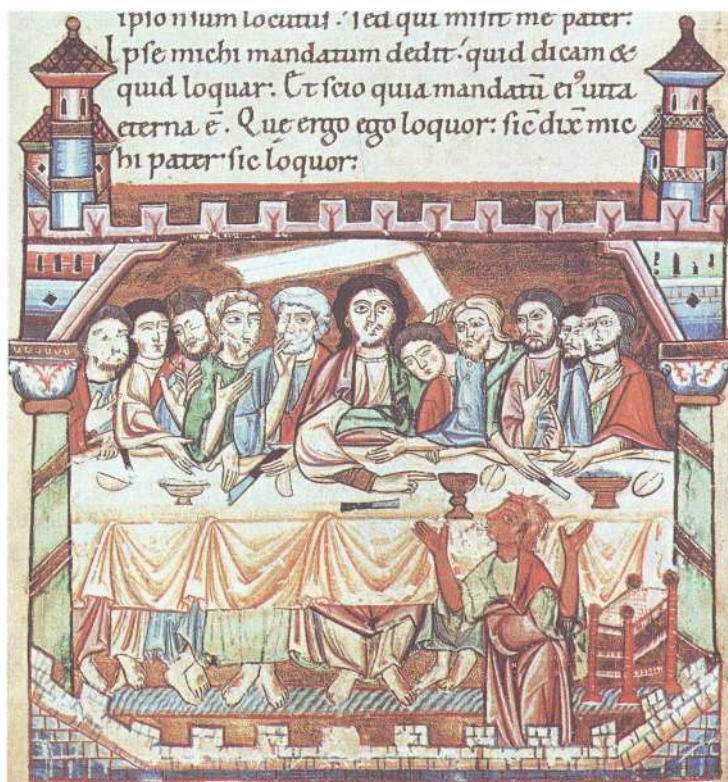 ipso nsum locutus. Sed qui misit me pater:
Ipse michi mandatum dedit: quid dicam &
quid loquar: Et scio quia mandatū ei⁹ uita
eterna ē. Que ergo ego loquor: sic dix̄ mic
hi pater sic loquor: